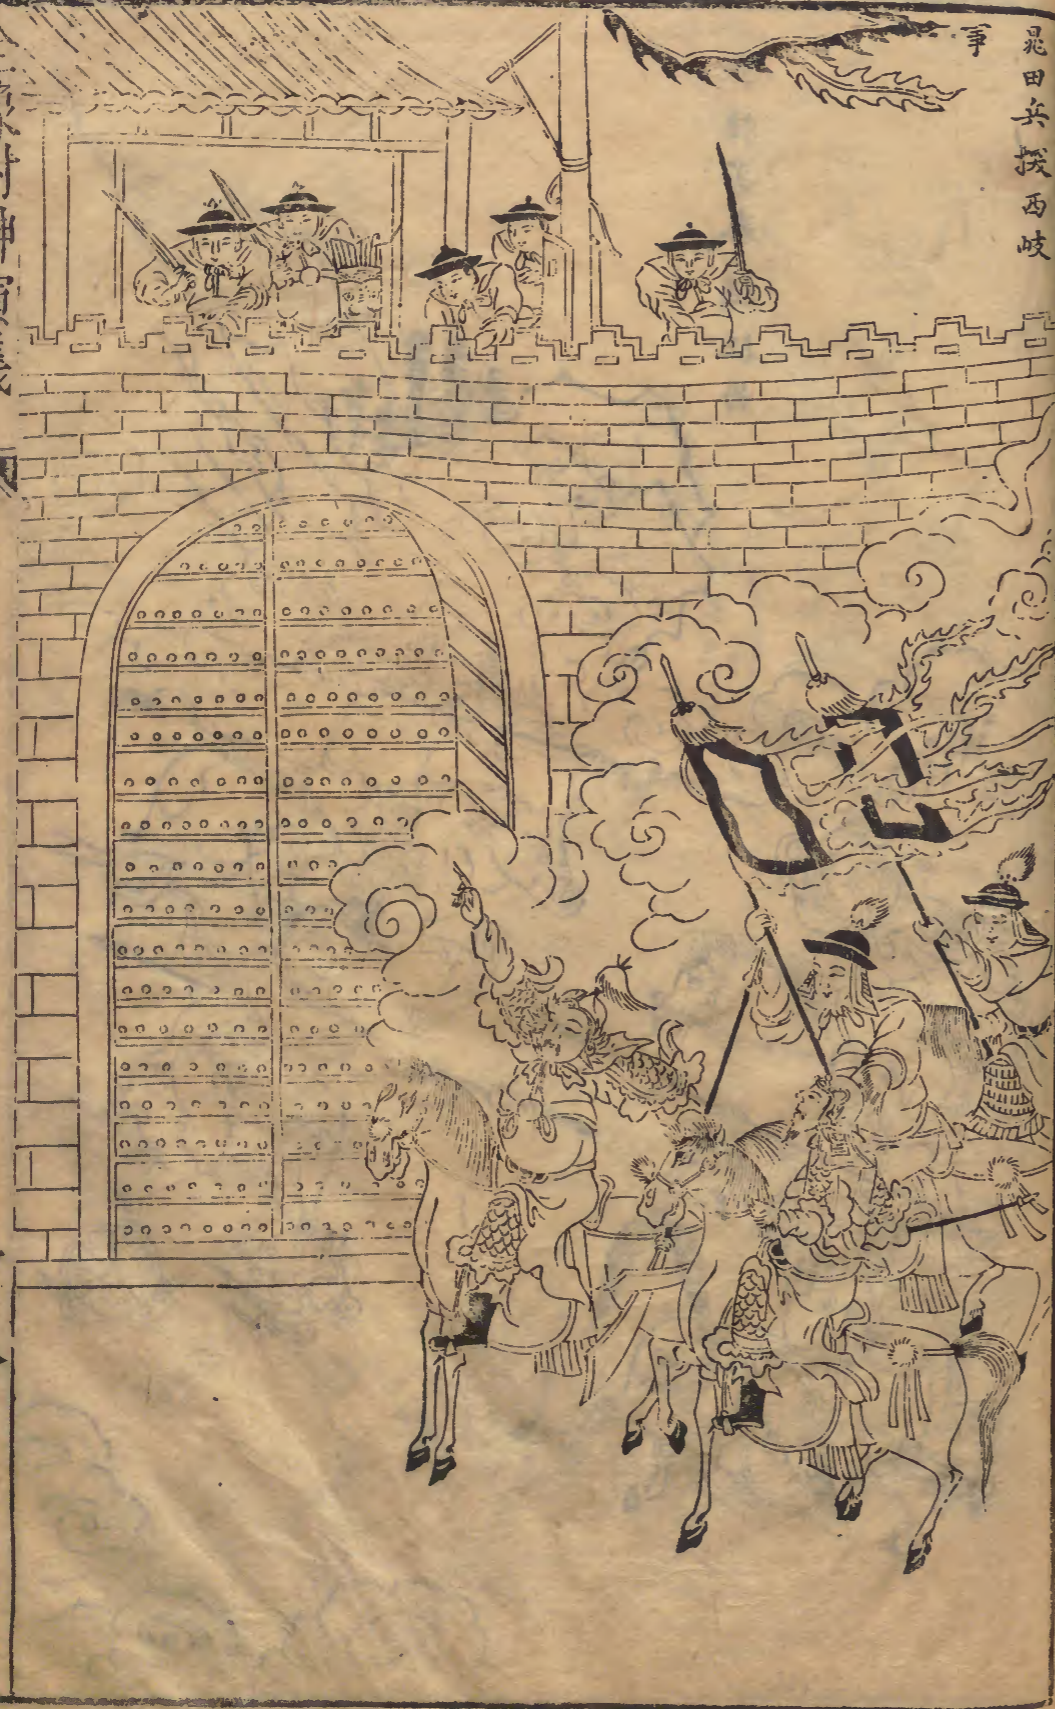 晁田兵援西岐
事
封神演義